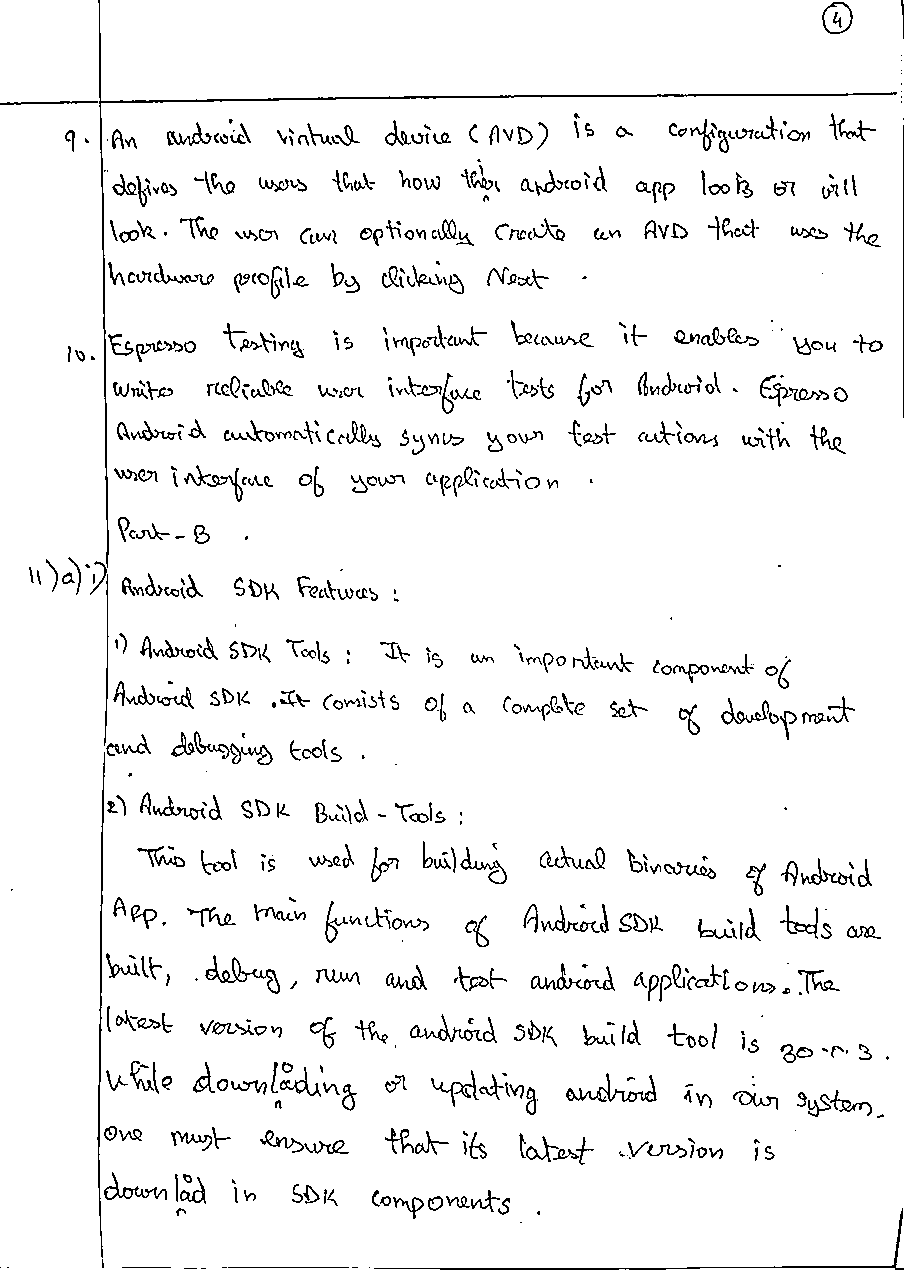 4
9. An android virtual device (AVD) is a configuration that
defines the users that how their android app looks or will
look. The user can optionally create an AVD that uses the
hardware profile by clicking Next.
10. Espresso testing is important because it enables you to
write reliable user interface tests for Android. Espresso
Android automatically syncs your test actions with the
user interface of your application.
Part-B.
11)a)i) Android SDK Features:
1) Android SDK Tools: It is an important component of
Android SDK. It consists of a complete set of development
and debugging tools.
2) Android SDK Build-Tools:
This tool is used for building actual binaries of Android
App. The main functions of Android SDK build tools are
built, debug, run and test android applications. The
latest version of the android SDK build tool is 30.0.3.
While downloading or updating android in our system.
one must ensure that its latest version is
download in SDK components.